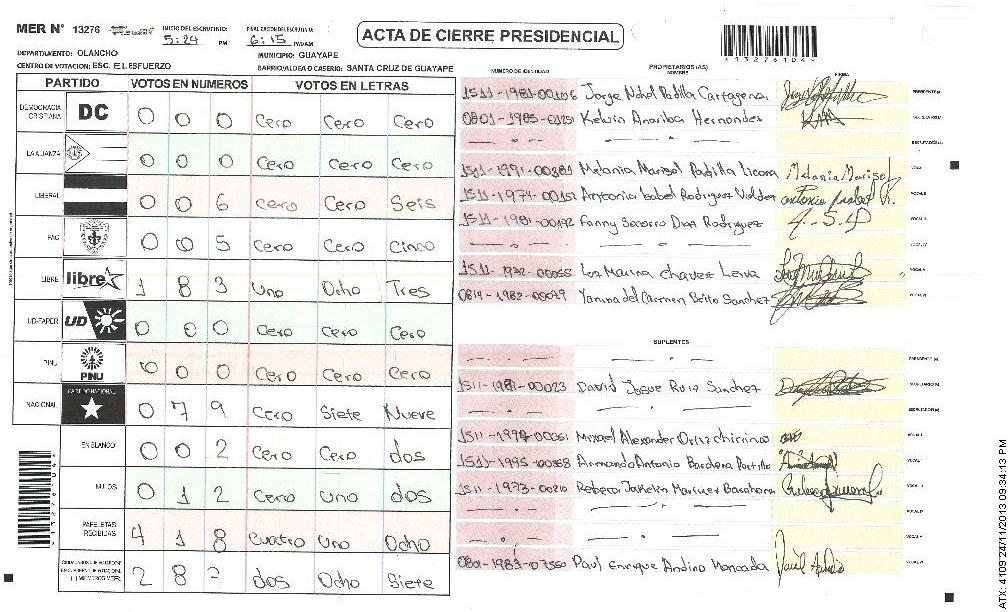 MER N° 13276 INICIO DEL ESCRUTINIO: 5:24 PM FINALIZACION DEL ESCRUTINIO: 6:15 PM/AM ACTA DE CIERRE PRESIDENCIAL
DEPARTAMENTO: OLANCHO MUNICIPIO: GUAYAPE
CENTRO DE VOTACION: ESC. EL ESFUERZO BARRIO/ALDEA O CASERIO: SANTA CRUZ DE GUAYAPE
*13276104*
PARTIDO VOTOS EN NUMEROS VOTOS EN LETRAS
DEMOCRACIA CRISTIANA DC 0 0 0 Cero Cero Cero
LA ALIANZA 0 0 0 Cero Cero Cero
LIBERAL 0 0 6 Cero Cero Seis
PAC 0 0 5 Cero Cero Cinco
LIBRE libre 1 8 3 Uno Ocho Tres
UD-FAPER UD 0 0 0 Cero Cero Cero
PINU PINU 0 0 0 Cero Cero Cero
NACIONAL PARTIDO NACIONAL 0 7 9 Cero Siete Nueve
EN BLANCO 0 0 2 Cero Cero dos
NULOS 0 1 2 Cero Uno dos
PAPELETAS RECIBIDAS 4 1 8 Cuatro Uno Ocho
2 8 7 dos Ocho Siete
NUMERO DE IDENTIDAD PROPIETARIOS (AS) NOMBRE FIRMA
1511-1981-00106 Jorge Nahul Padilla Cartagena PRESIDENTE(A)
Kelvin Anariba Hernandez SECRETARIO(A)
ESCRUTADOR(A)
1511-1991-00381 Melania Marisol Padilla Licona Melania Marisol VOCAL I
1511-1974-00151 Antonia Isabel Rodriguez Valdez Antonia Isabel R. VOCAL II
1511-1981-00192 Fanny Socorro Diaz Rodriguez VOCAL III
VOCAL IV
Luz Marina Chavez Leiva VOCAL V
0814-1982-00079 Yanina del Carmen Brito Sanchez VOCAL VI
SUPLENTES
PRESIDENTE (A)
David Josue Ruiz Sanchez SECRETARIO (A)
ESCRUTADOR(A)
Misael Alexander Ortiz chirinos VOCAL I
1511-1995-00368 Armando Antonio Bardera Portillo VOCAL II
1511-1973-00210 Rebeca Jakelin Martinez Barahona VOCAL III
VOCAL IV
VOCAL V
Paul Enrique Andino Moncada VOCAL VI
*13276104*
ATX: 4109 24/11/2013 09:34:13 PM